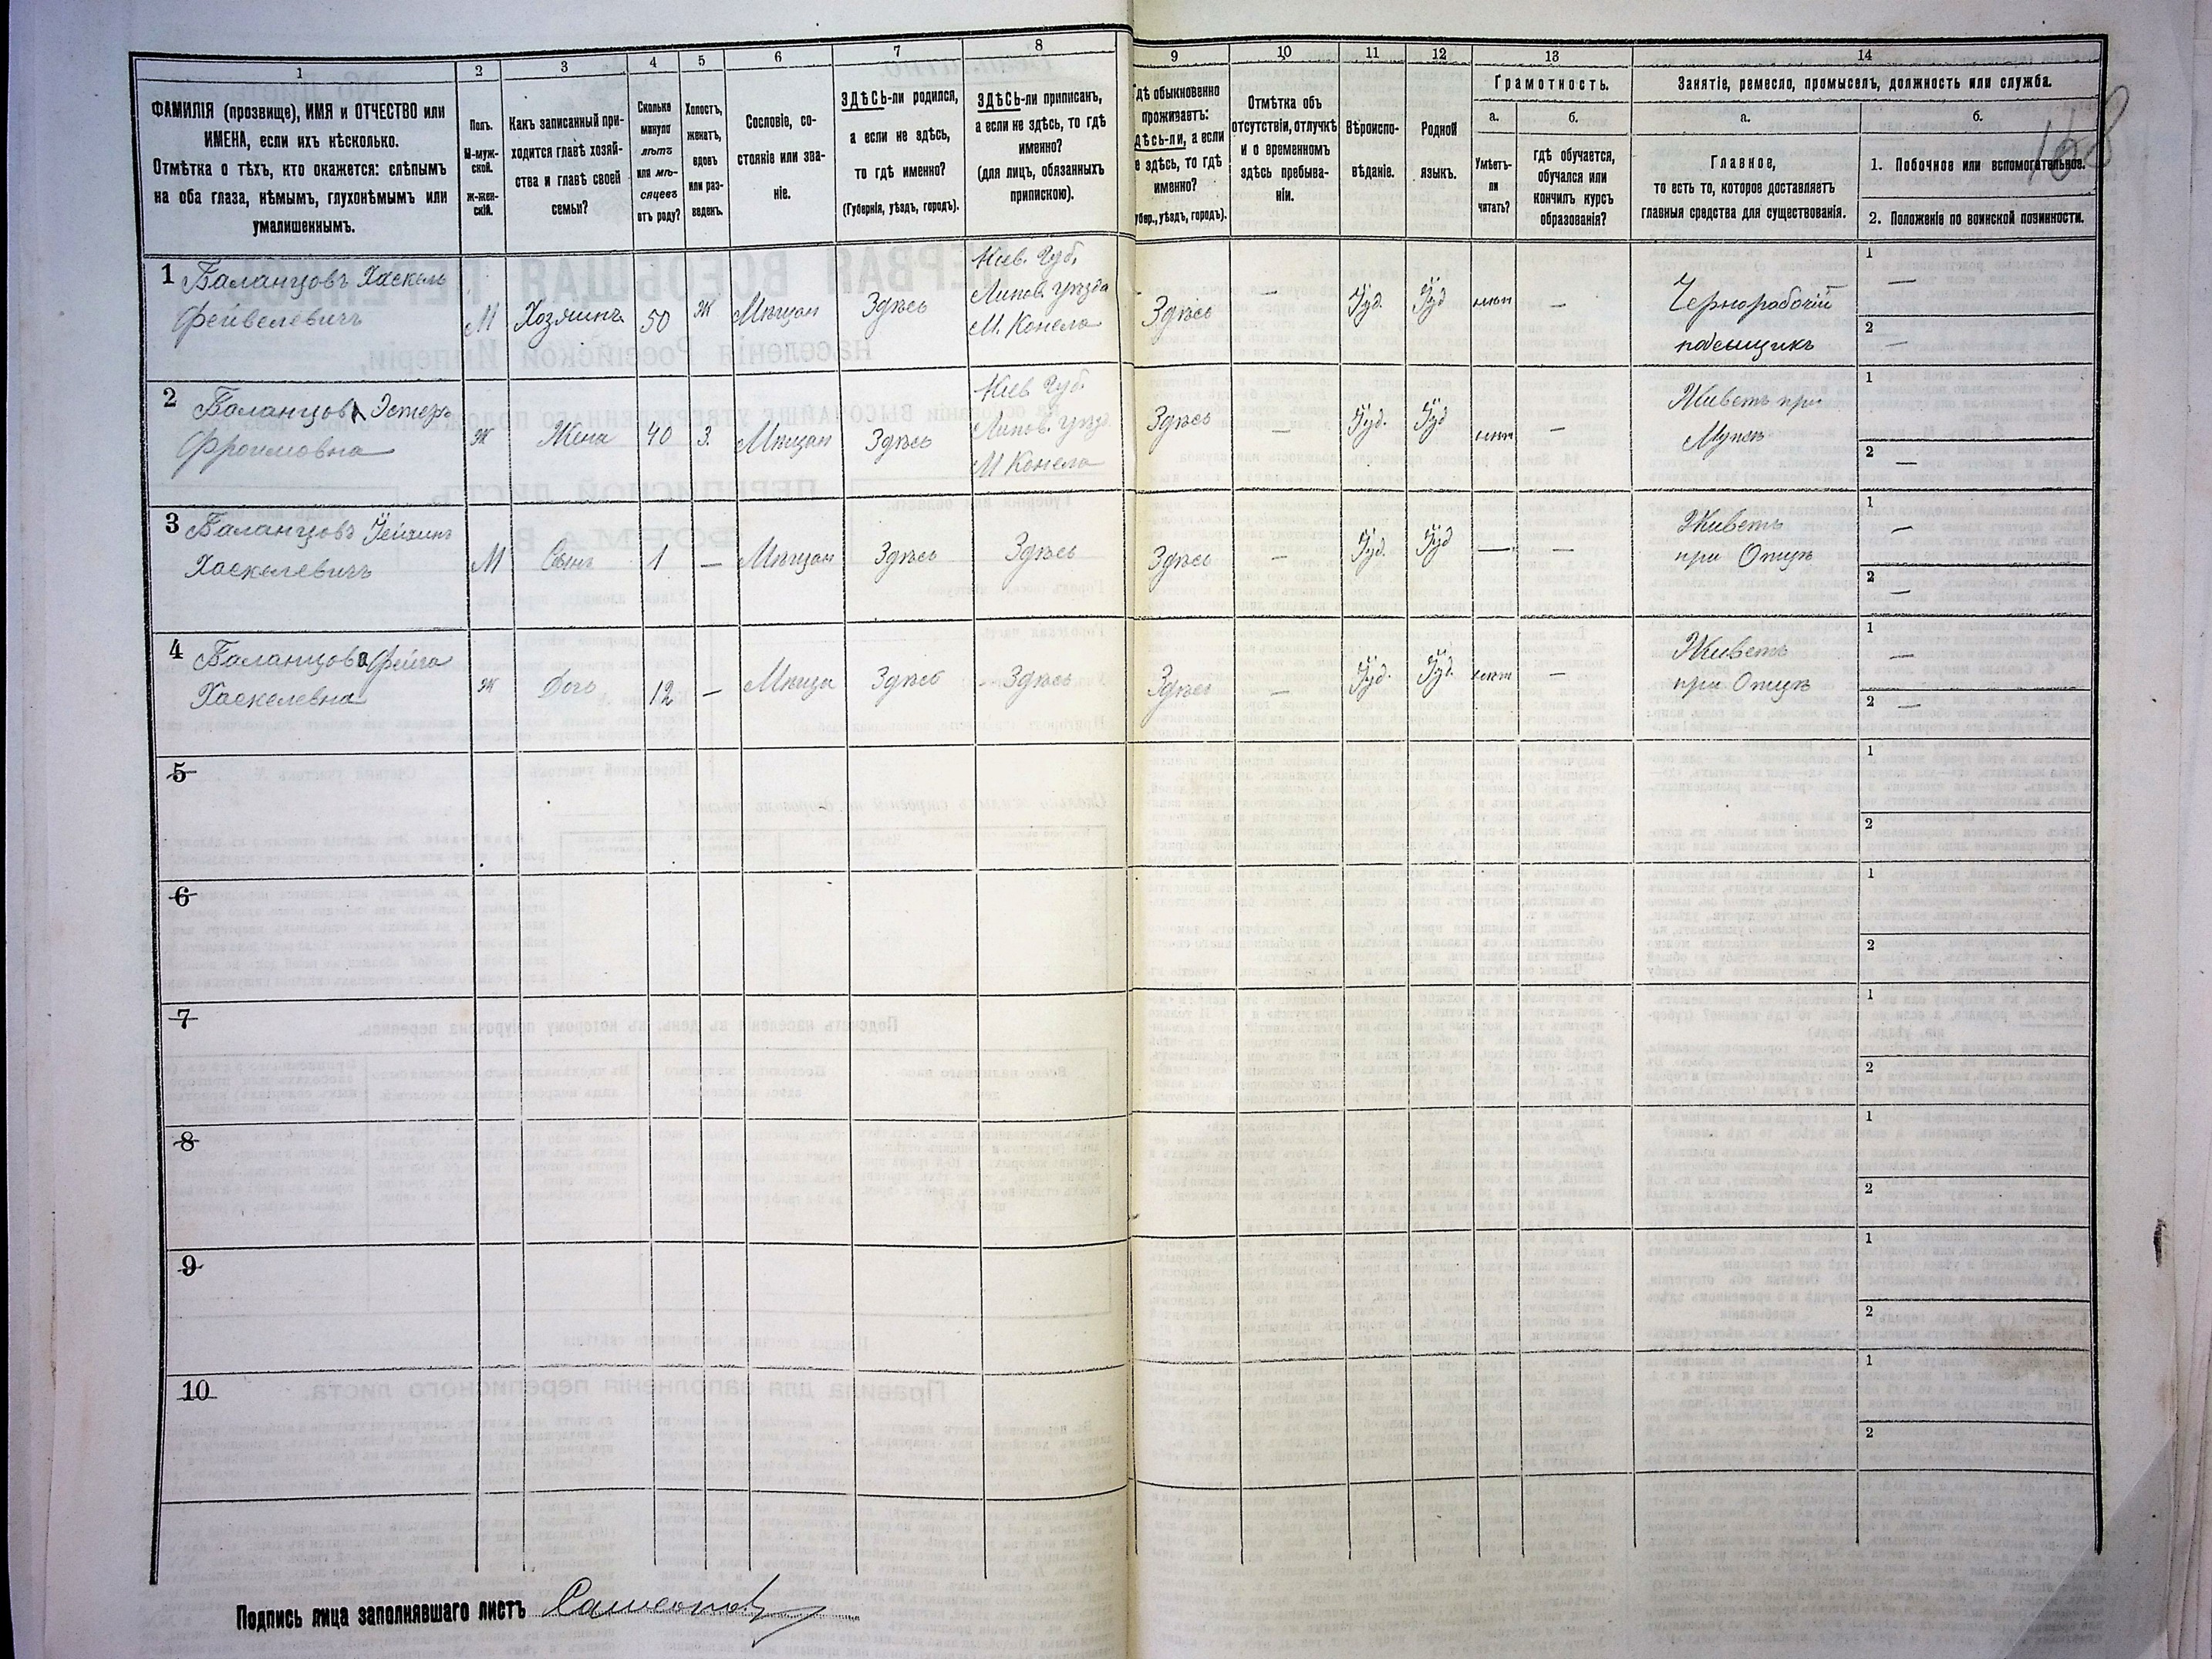 1
2
3
4
5
6
7
8
9
10
11
12
13
14
ФАМИЛІЯ (прозвище), ИМЯ и ОТЧЕСТВО или
ИМЕНА, если ихъ нѣсколько.
Отмѣтка о тѣхъ, кто окажется: слѣпымъ
на оба глаза, нѣмымъ, глухонѣмымъ или
умалишеннымъ.
Полъ.
М-муж-
ской.
ж-жен-
скій.
Какъ записанный при-
ходится главѣ хозяй-
ства и главѣ своей
семьи?
Сколько
минуло
лѣтъ
или мѣ-
сяцевъ
отъ роду?
Холостъ,
женатъ,
вдовъ
или раз-
веденъ.
Сословіе, со-
стояніе или зва-
ніе.
ЗДѢСЬ-ли родился,
а если не здѣсь,
то гдѣ именно?
(Губернія, уѣздъ, городъ).
ЗДѢСЬ-ли приписанъ,
а если не здѣсь, то гдѣ
именно?
(для лицъ, обязанныхъ
припискою).
гдѣ обыкновенно
проживаетъ:
здѣсь-ли, а если
не здѣсь, то гдѣ
именно?
(губер., уѣздъ, городъ).
Отмѣтка объ
отсутствіи, отлучкѣ
и о временномъ
здѣсь пребыва-
ніи.
Вѣроиспо-
вѣданіе.
Родной
языкъ.
Грамотность.
а.
б.
Умѣетъ-
ли
читать?
гдѣ обучается,
обучался или
кончилъ курсъ
образованія?
Занятіе, ремесло, промыселъ, должность или служба.
а.
б.
Главное,
то есть то, которое доставляетъ
главныя средства для существованія.
1. Побочное или вспомогательное.
2. Положеніе по воинской повинности.
168
1 Баланцовъ Хаскель
Фейвелевичъ
М
Хозяинъ
50
Ж
Мѣщан
Здѣсь
Кіев. Губ.
Липов. уѣзда
М. Конела
Здѣсь
—
Іуд.
Іуд
нѣт
—
Чернорабочій
поденщикъ
1 —
2 —
2 Баланцова Эстеръ
Фроимовна
Ж
Жена
40
З.
Мѣщан
Здѣсь
Кіев Губ.
Липов. уѣзд.
М Конела
Здѣсь
—
Іуд.
Іуд
нѣт
—
Живетъ при
Мужѣ
1
2 —
3 Баланцовъ
Хаскелевичъ
М
Сынъ
1
—
Мѣщан
Здѣсь
Здѣсь
Здѣсь
—
Іуд.
Іуд
—
—
Живетъ
при Отцѣ
1 —
2 —
4 Баланцова Фейга
Хаскелевна
Ж
Дочь
12
—
Мѣща
Здѣсь
Здѣсь
Здѣсь
—
Іуд.
Іуд.
нѣт
—
Живетъ
при Отцѣ
1 —
2 —
5
1
2
6
1
2
7
1
2
8
1
2
9
1
2
10
1
2
Подпись лица заполнявшаго листъ